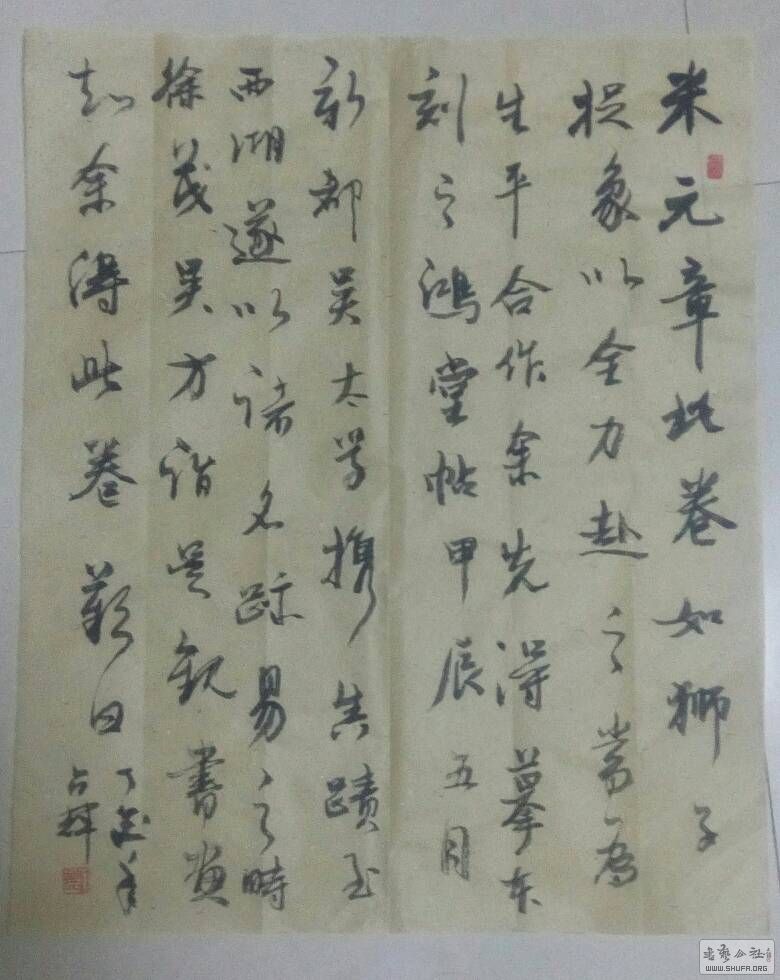 米元章此卷如狮子
捉象以全力赴之当为
生平合作余先得摹本
刻之鸿堂帖甲辰五月
新都吴太学携真蹟至
西湖遂以诸名跡易之时
徐茂吴方诣吴观书画
知余得此卷叹曰
丁酉年
占辉
书艺公社
WWW.SHUFA.ORG